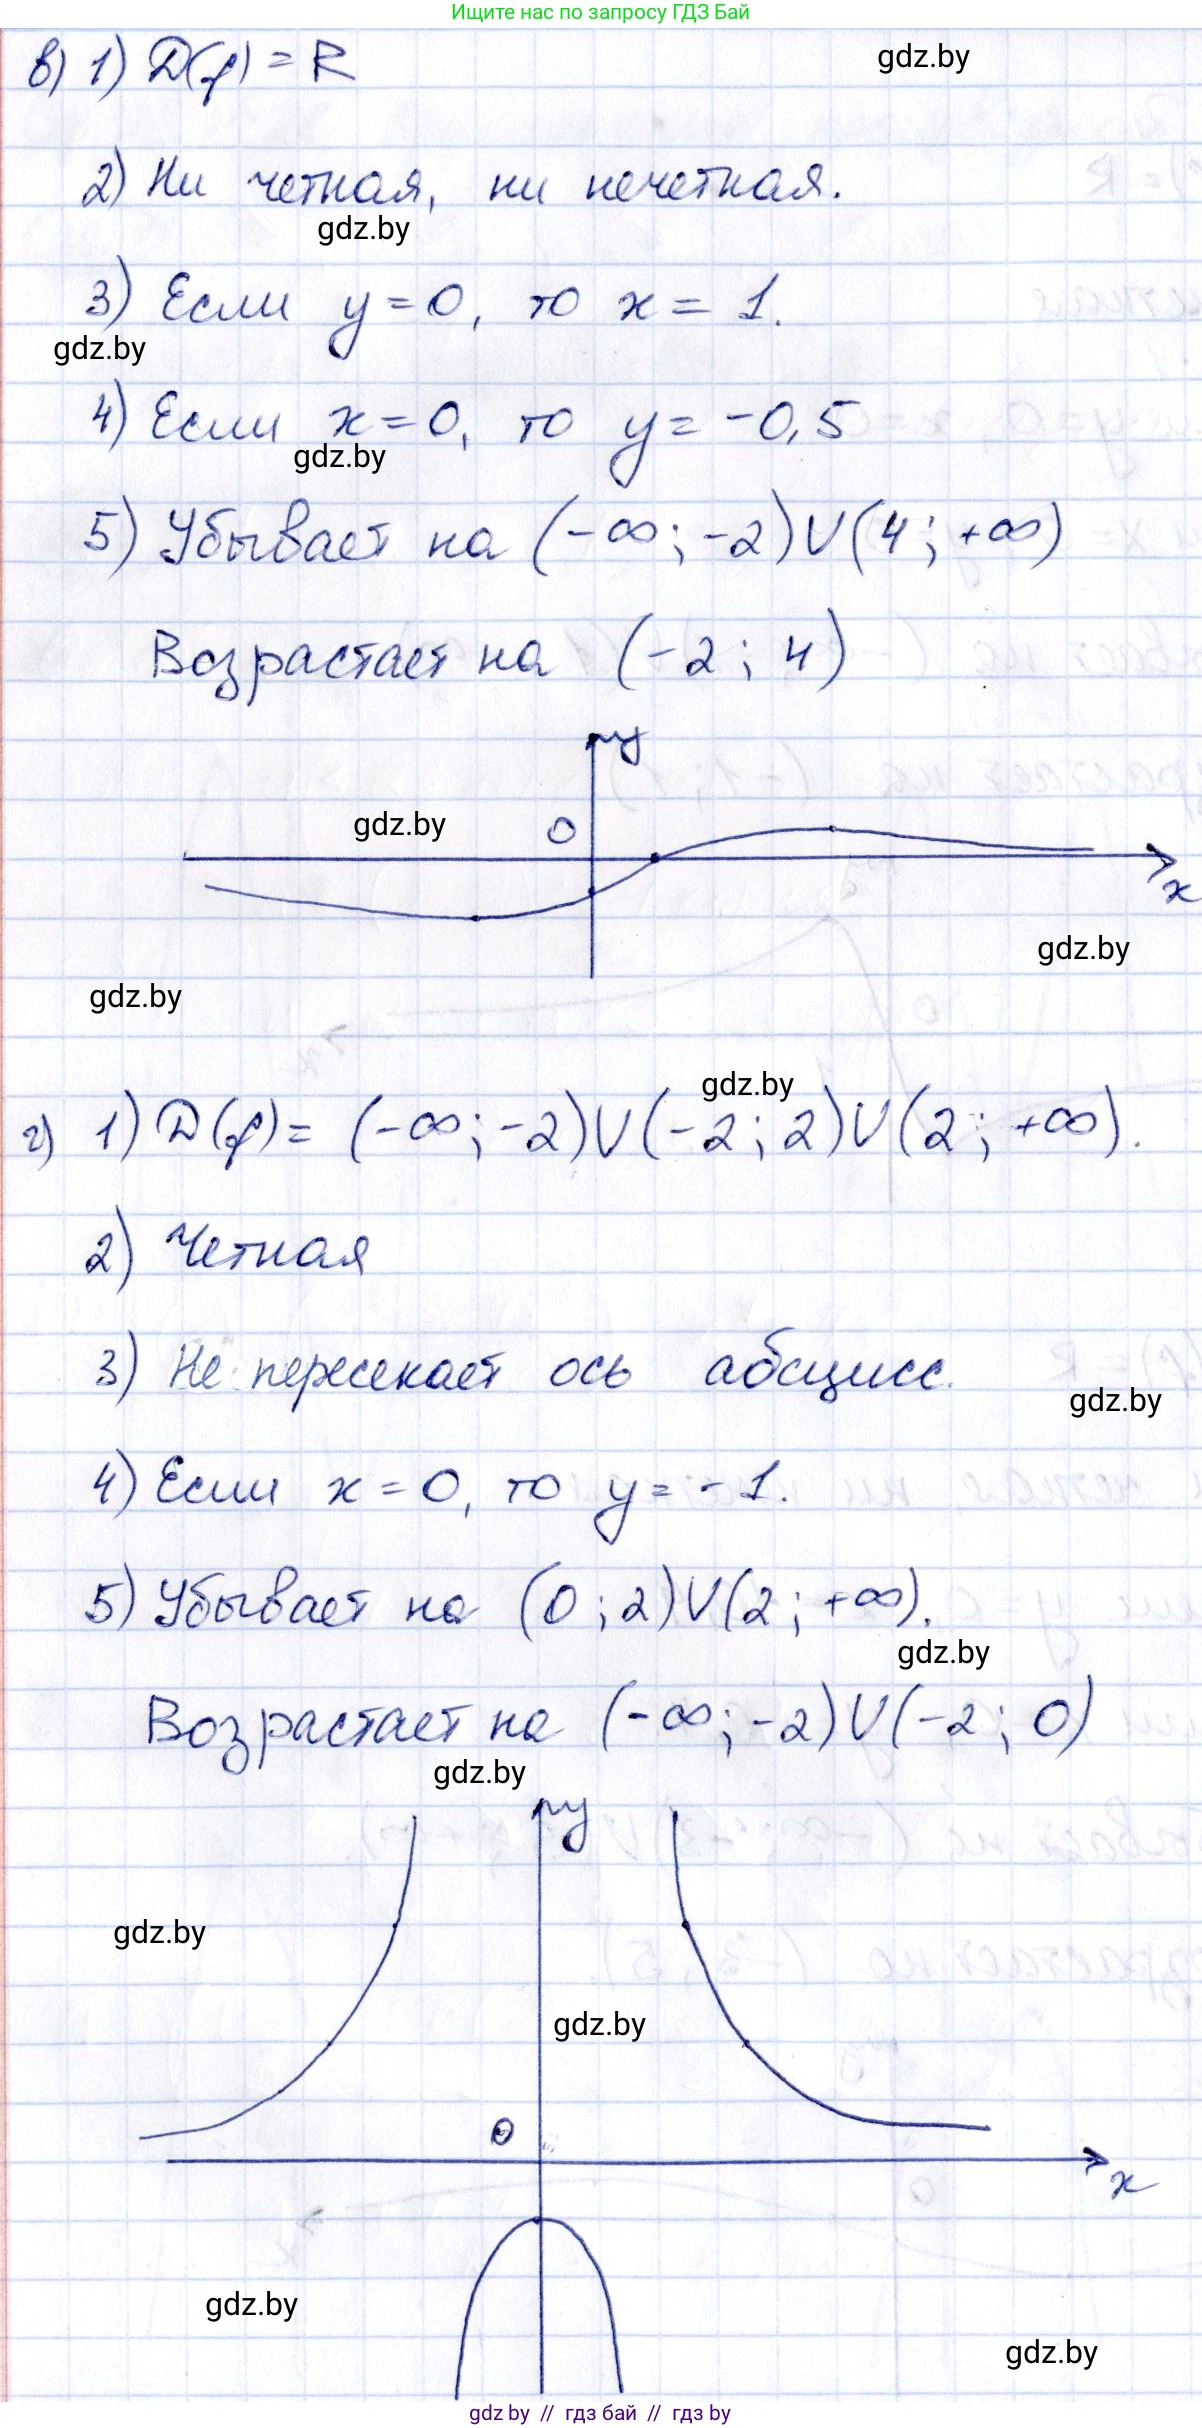 Ищите нас по запросу ГДЗ Бай
gdz.by
в) 1) D(f) = R
2) Ни четная, ни нечетная.
gdz.by
3) Если y = 0, то x = 1.
gdz.by
4) Если x = 0, то y = -0,5
gdz.by
5) Убывает на (-∞; -2) U (4; +∞)
Возрастает на (-2; 4)
y
gdz.by
0
x
gdz.by
gdz.by
gdz.by
г) 1) D(f) = (-∞; -2) U (-2; 2) U (2; +∞).
2) Четная
3) Не пересекает ось абсцисс.
gdz.by
4) Если x = 0, то y = -1.
5) Убывает на (0; 2) U (2; +∞).
gdz.by
Возрастает на (-∞; -2) U (-2; 0)
gdz.by
y
gdz.by
gdz.by
0
x
gdz.by
gdz.by
gdz by // гдз бай // гдз by